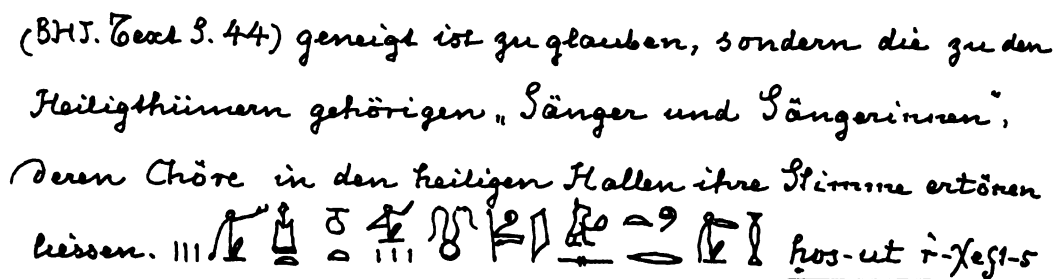 (BHJ. Text S. 44) geneigt ist zu glauben, sondern die zu den
Heiligthümern gehörigen „Sänger und Sängerinnen",
deren Chöre in den heiligen Hallen ihre Stimme ertönen
liessen. ḥos-ut